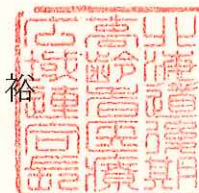 北海道後期
高齢者医療
広域連合長
裕